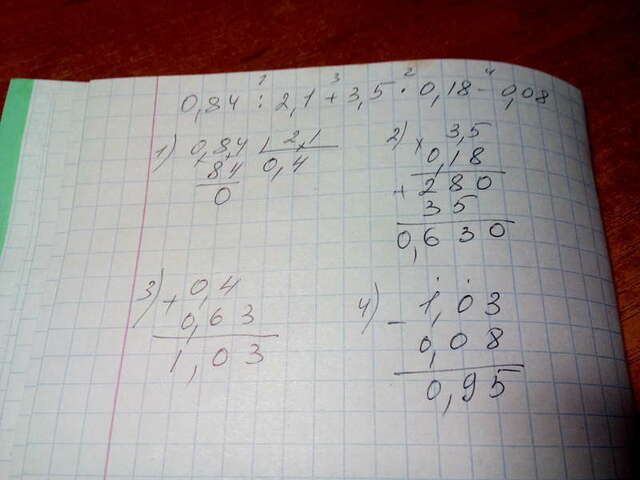 1 3 2 4
0,84 : 2,1 + 3,5 · 0,18 - 0,08
1) 0,84 2,1
84 0,4
0
2) × 3,5
0,18
+ 280
35
0,630
3) + 0,4
0,63
1,03
4) - 1,03
0,08
0,95